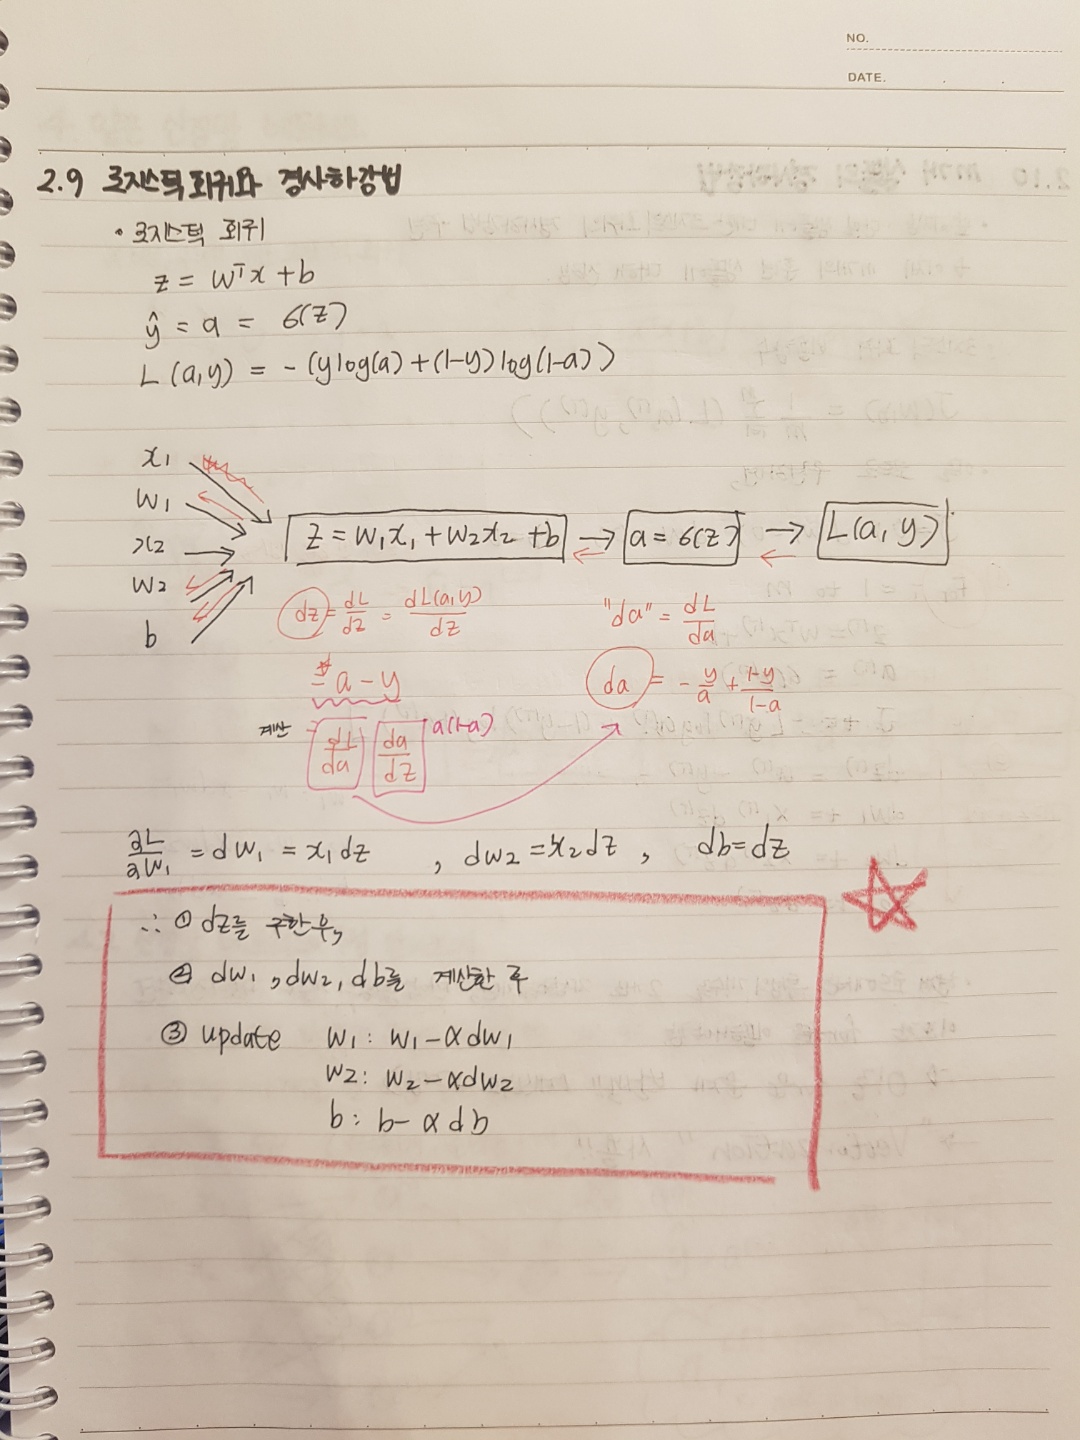 NO.
DATE.
2.9 로지스틱 회귀와 경사하강법
• 로지스틱 회귀
z = wᵀx + b
ŷ = a = 6(z)
L(a,y) = -(ylog(a)+(1-y)log(1-a))
x1
w1
x2
w2
b
z = w1x1 + w2x2 + b → a = 6(z) → L(a, y)
dz = dL/dz = dL(a,y)/dz
"da" = dL/da
= a - y
da = -y/a + 1-y/1-a
계산 = dL/da da/dz a(1-a)
∂L/∂w1 = dw1 = x1dz , dw2 = x2dz , db = dz
∴ ① dz를 구한 후,
② dw1, dw2, db를 계산한 후
③ update w1: w1 - αdw1
w2: w2 - αdw2
b: b - αdb